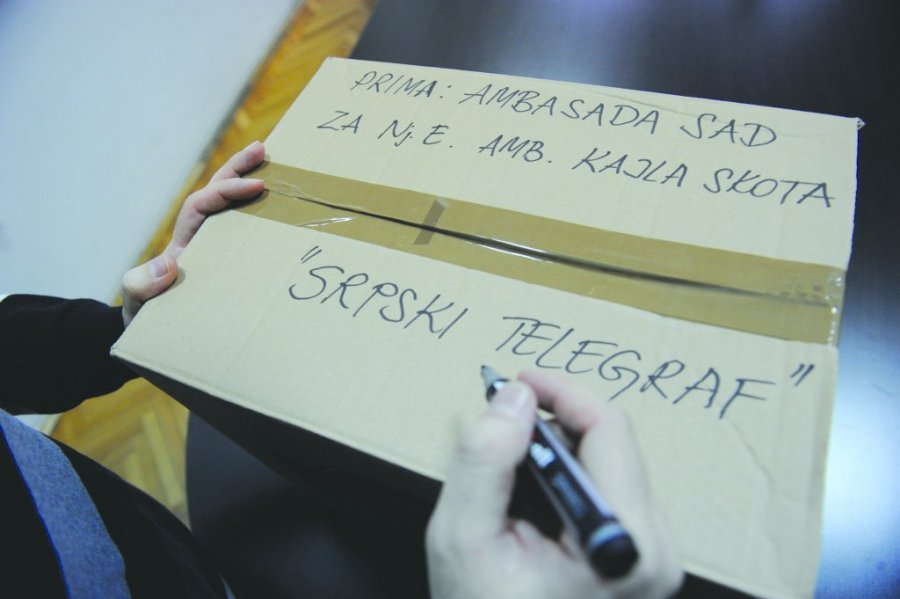 PRIMA: AMBASADA SAD
ZA Nj. E. AMB. KAJLA SKOTA
"SRPSKI TELEGRAF"